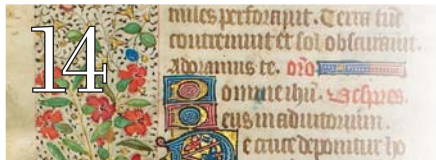 14
miles perforauit. Terra tūc
contremuit et sol obscurauit.
Adoramus te. or̄o
Domine ihū.
Deus in adiutorium.
De cruce deponitur ho